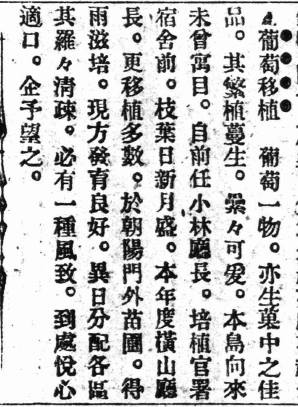 葡萄移植　葡萄一物。亦生菓中之佳
品。其繁植蔓生。纍々可愛。本島向來
未曾寓目。自前任小林廳長。培植官署
宿舍前。枝葉日新月盛。本年度橫山廳
長。更移植多數。於朝陽門外苗圃。得
雨滋培。現方發育良好。異日分配各區
其羅々清疎。必有一種風致。到處悅心
適口。企予望之。